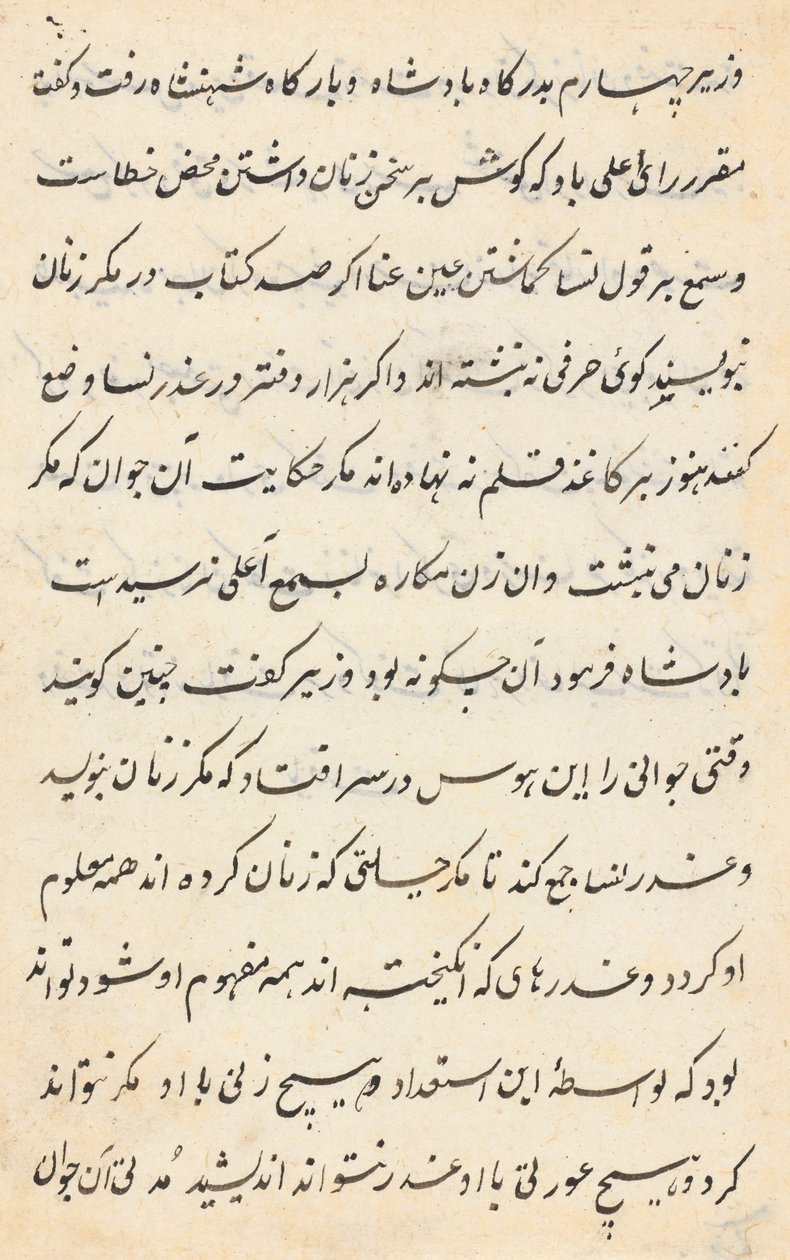 وزیر چهارم بدرکاه بادشاه و بارکاه شهنشاه رفت و کفت
مقرر رای اعلی باد که کوش بر سخن زنان داشتن محض خطاست
و سمع بر قول نسا کماشتن عین عنا اکر صد کتاب در مکر زنان
نبویسند کوئ حرفی نه نبشته اند و اکر هزار دفتر در غدر نسا وضع
کنند هنوز بر کاغذ قلم نه نهاده اند مکر حکایت آن جوان که مکر
زنان می نبشت و ان زن مکاره بسمع اعلی نرسید است
بادشاه فرمود آن چکونه بود وزیر کفت چنین کویند
وقتی جوانی را این هوس در سر افتاد که مکر زنان بنوید
و غدر نسا جمع کند تا مکر حیلتی که زنان کرده اند همه معلوم
او کردد و غدرهای که انکیخته اند همه مفهوم او شود تواند
بود که بواسطۀ این استعداد هیچ زنی با او مکر نتواند
کرد و هیچ عورتی با او غدر نتواند اندیشید مُدتی آن جوان